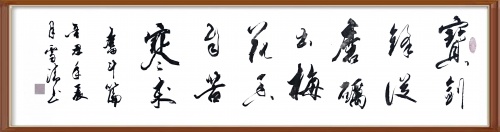 寶劍
鋒從
磨礪
出梅
花香
自苦
寒来
奮斗篇
辛丑年夏
月雪书